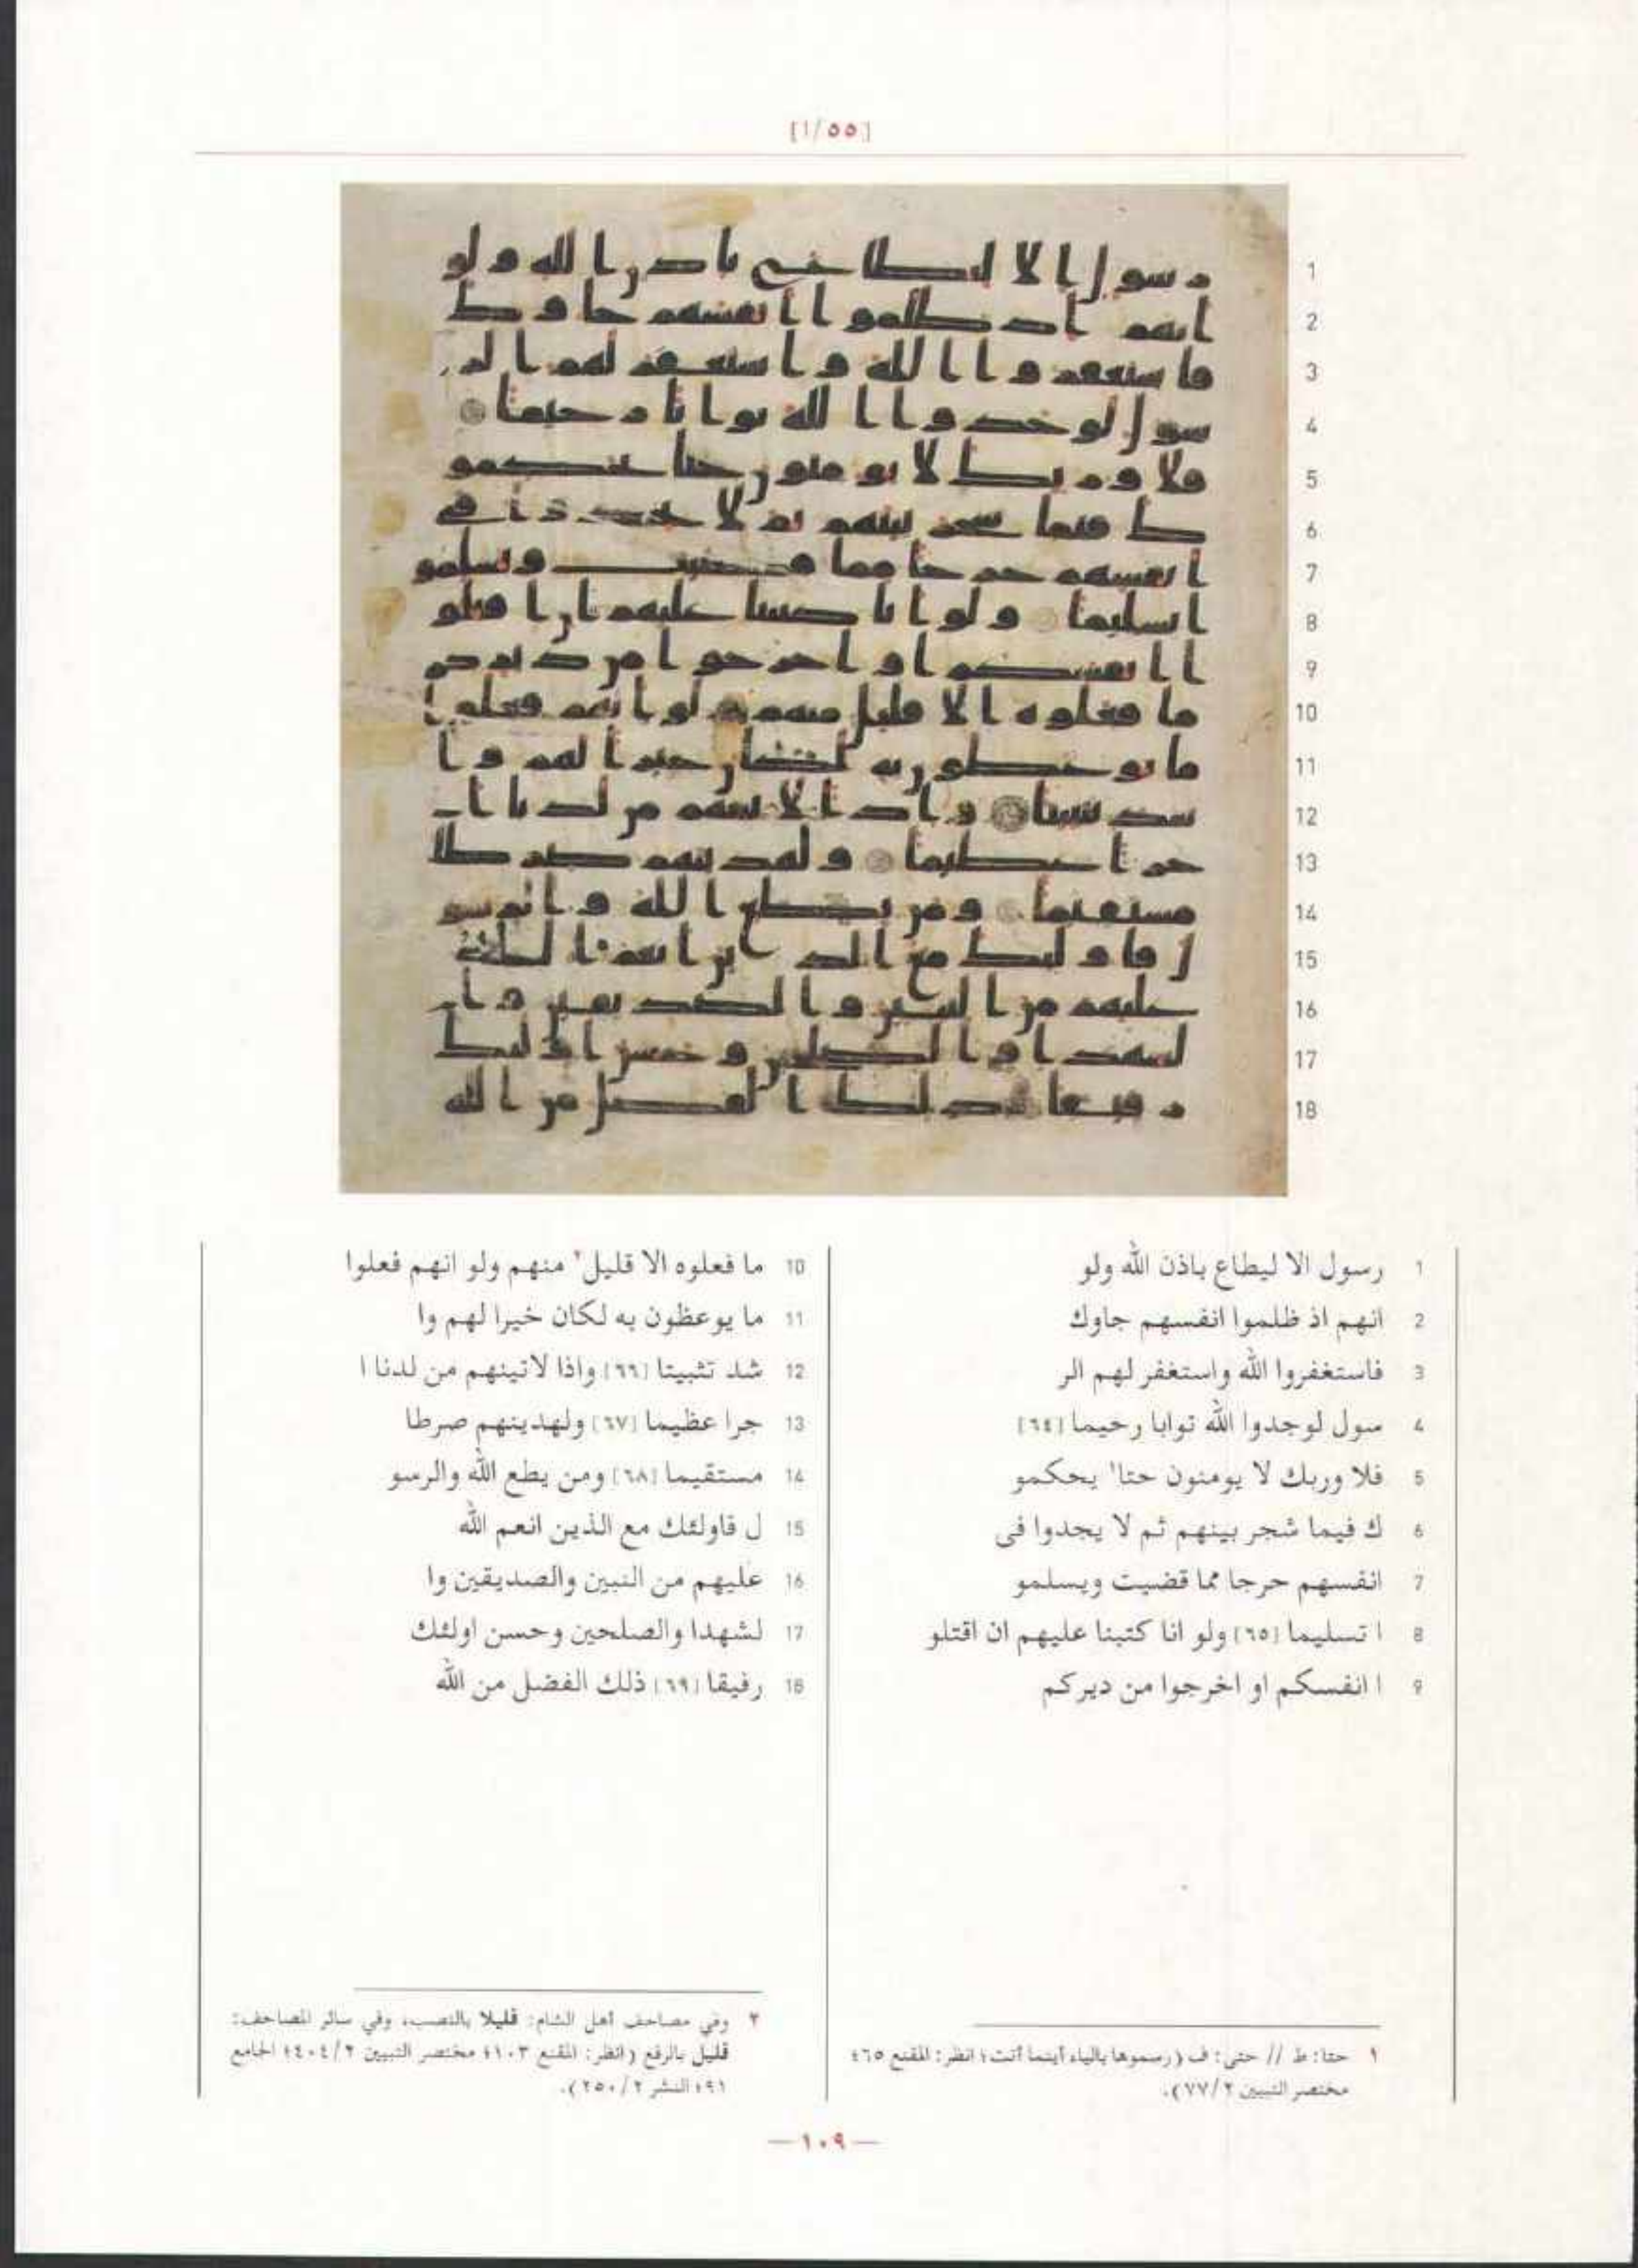 [١/٥٥]
1 رسول الا ليطاع باذن الله ولو
2 انهم اذ ظلموا انفسهم جاوك
3 فاستغفروا الله واستغفر لهم الر
4 سول لوجدوا الله توابا رحيما [٦٤]
5 فلا وربك لا يومنون حتا١ يحكمو
6 ك فيما شجر بينهم ثم لا يجدوا فى
7 انفسهم حرجا مما قضيت ويسلمو
8 ا تسليما [٦٥] ولو انا كتبنا عليهم ان اقتلو
9 ا انفسكم او اخرجوا من ديركم
10 ما فعلوه الا قليل٢ منهم ولو انهم فعلوا
11 ما يوعظون به لكان خيرا لهم وا
12 شد تثبيتا [٦٦] واذا لاتينهم من لدنا ا
13 جرا عظيما [٦٧] ولهدينهم صرطا
14 مستقيما [٦٨] ومن يطع الله والرسو
15 ل فاولئك مع الذين انعم الله
16 عليهم من النبين والصديقين وا
17 لشهدا والصلحين وحسن اولئك
18 رفيقا [٦٩] ذلك الفضل من الله
١ حتا: ط // حتى: ف (رسموها بالياء أينما أتت؛ انظر: المقنع ٦٥؛
مختصر التبيين ٧٧/٢).
٢ وفي مصاحف أهل الشام: قليلا بالنصب، وفي سائر المصاحف:
قليل بالرفع (انظر: المقنع ١٠٣؛ مختصر التبيين ٤٠٤/٢؛ الجامع
٩١؛ النشر ٢٥٠/٢).
—١٠٩—